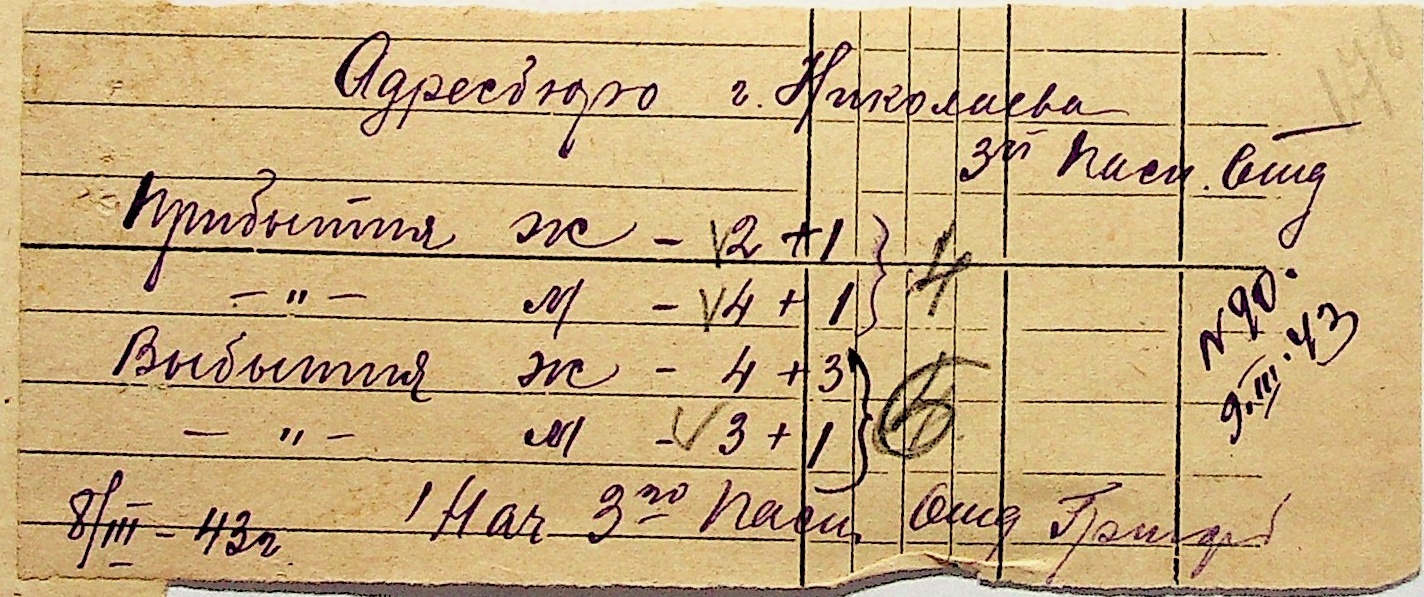 Адресбюро г. Николаева
3й Пасп. Отд
Прибытия ж - 2 + 1 } 4
- " - м - 4 + 1
Выбытия ж - 4 + 3 }
- " - м - 3 + 1
N 20.
9.III.43
8/III - 43г
Нач 3го Пасп. Отд